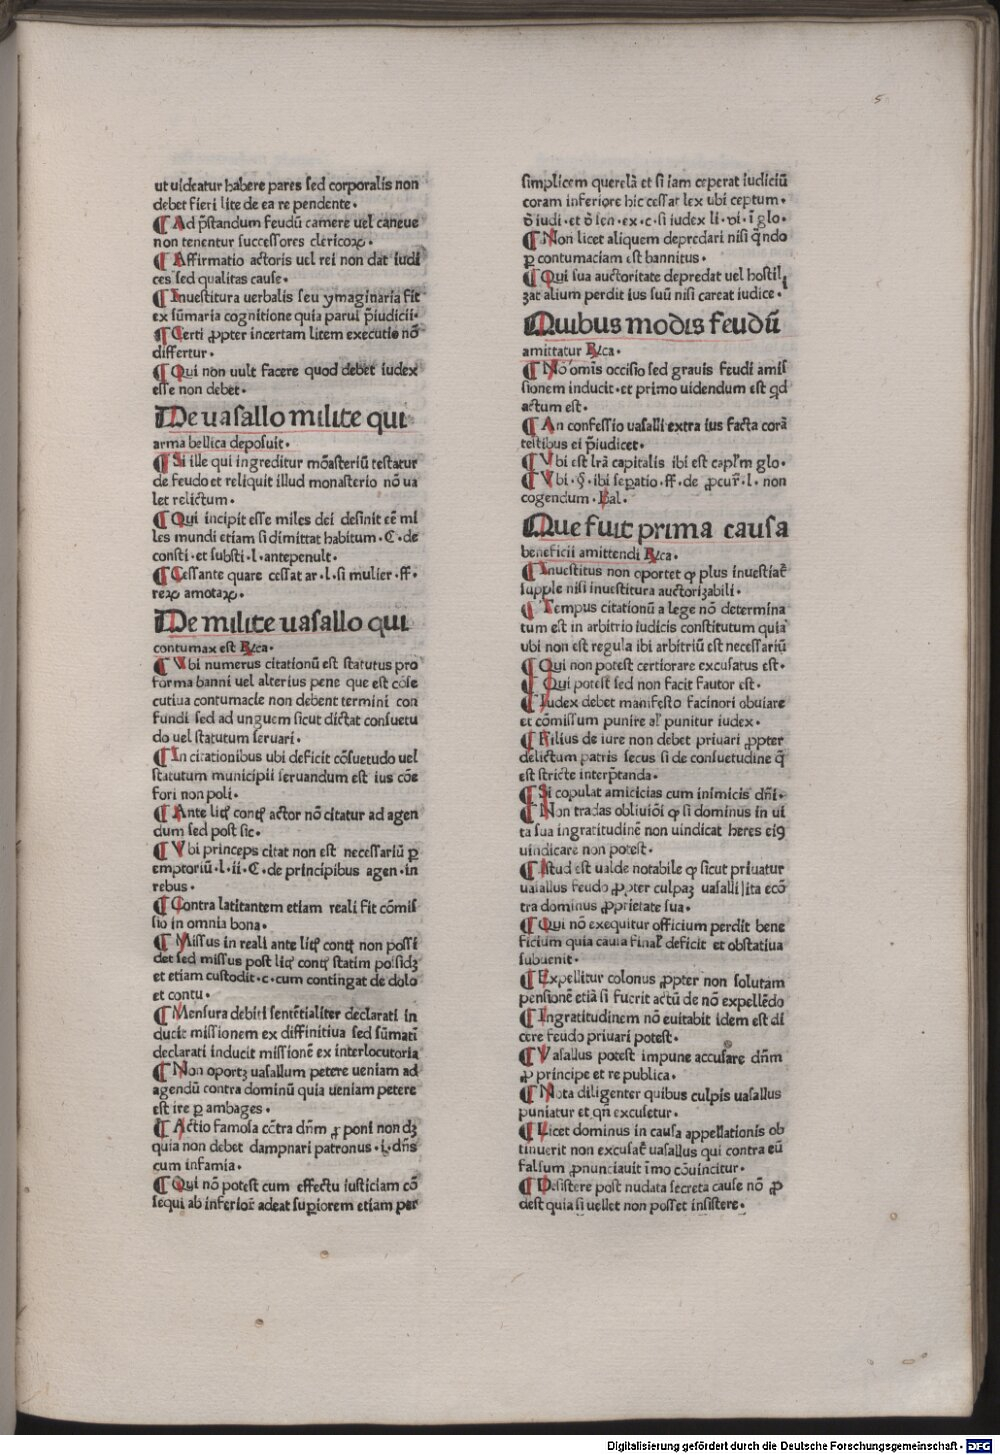 5
ut uideatur habere pares sed corporalis non
debet fieri lite de ea re pendente.
¶ Ad p̃standum feudũ camere uel caneue
non tenentur successores clericoꝝ.
¶ Affirmatio actoris uel rei non dat iudi
ces sed qualitas cause.
¶ Inuestitura uerbalis seu ymaginaria fit
ex sũmaria cognitione quia parui p̃iudicii.
¶ Certi ꝓpter incertam litem executio nõ
differtur.
¶ Qui non uult facere quod debet iudex
esse non debet.
De uasallo milite qui
arma bellica deposuit.
¶ Si ille qui ingreditur mõasteriũ testatur
de feudo et reliquit illud monasterio nõ ua
let relictum.
¶ Qui incipit esse miles dei desinit eẽ mi
les mundi etiam si dimittat habitum. C. de
consti. et substi. l. antepenult.
¶ Cessante quare cessat ar. l. si mulier. ff.
reꝝ amotaꝝ.
De milite uasallo qui
contumax est Rica.
¶ Vbi numerus citationũ est statutus pro
forma banni uel alterius pene que est cõse
cutiua contumacie non debent termini con
fundi sed ad unguem sicut dictat consuetu
do uel statutum seruari.
¶ In citationibus ubi deficit cõsuetudo uel
statutum municipii seruandum est ius cõe
fori non poli.
¶ Ante litẽ contẽ actor nõ citatur ad agen
dum sed post sic.
¶ Vbi princeps citat non est necessariũ ꝑ
emptoriũ. l. ii. C. de principibus agen. in
rebus.
¶ Contra latitantem etiam reali fit cõmis
sio in omnia bona.
¶ Missus in reali ante litẽ contẽ non possi
det sed missus post litẽ contẽ statim possidꝫ
et etiam custodit. c. cum contingat de dolo
et contu.
¶ Mensura debiti sentẽtialiter declarati in
ducit missionem ex diffinitiua sed sũmati
declarati inducit missionẽ ex interlocutoria
¶ Non oportꝫ uasallum petere ueniam ad
agendũ contra dominũ quia ueniam petere
est ire ꝑ ambages.
¶ Actio famosa cõtra dñm ꝓponi non dꝫ
quia non debet dampnari patronus. i. dñs
cum infamia.
¶ Qui nõ potest cum effectu iusticiam cõ
sequi ab inferiori adeat supiorem etiam per
simplicem querelã et si iam ceperat iudiciũ
coram inferiore hic cessat lex ubi ceptum.
ð iudi. et ð sen. ex. c. si iudex li. vi. ĩ glo.
¶ Non licet aliquem depredari nisi qñdo
ꝑ contumaciam est bannitus.
¶ Qui sua auctoritate depredat uel hostili
ꝫat alium perdit ius suũ nisi careat iudice.
Quibus modis feudũ
amittatur Rica.
¶ Nõ omis occisio sed grauis feudi amis
sionem inducit. et primo uidendum est qd
actum est.
¶ An confessio uasalli extra ius facta corã
testibus ei p̃iudicet.
¶ Vbi est lrã capitalis ibi est capłm glo.
¶ Vbi. §. ibi sepatio. ff. de ꝓcur. l. non
cogendum. Bal.
Que fuit prima causa
beneficii amittendi Rica.
¶ Inuestitus non oportet ꝙ plus inuestiat
supple nisi inuestitura auctoriꝫabili.
¶ Tempus citationũ a lege nõ determina
tum est in arbitrio iudicis constitutum quia
ubi non est regula ibi arbitriũ est necessariũ
¶ Qui non potest certiorare excusatus est.
¶ Qui potest sed non facit fautor est.
¶ Iudex debet manifesto facinori obuiare
et cõmissum punire al' punitur iudex.
¶ Filius de iure non debet priuari ꝓpter
delictum patris secus si de consuetudine q̃
est stricte interp̃tanda.
¶ Si copulat amicicias cum inimicis dñi.
¶ Non tradas obliuiõi ꝙ si dominus in ui
ta sua ingratitudinẽ non uindicat heres eiꝰ
uindicare non potest.
¶ Istud est ualde notabile ꝙ sicut priuatur
uasallus feudo ꝓpter culpaꝫ uasalli ita ecõ
tra dominus ꝓprietate sua.
¶ Qui nõ exequitur officium perdit bene
ficium quia causa final' deficit et obstatiua
subuenit.
¶ Expellitur colonus ꝓpter non solutam
pensionẽ etiã si fuerit actũ de nõ expellẽdo
¶ Ingratitudinem nõ euitabit idem est di
cere feudo priuari potest.
¶ Vasallus potest impune accusare dñm
ꝓ principe et re publica.
¶ Nota diligenter quibus culpis uasallus
puniatur et qñ excusetur.
¶ Licet dominus in causa appellationis ob
tinuerit non excusat uasallus qui contra eũ
falsum ꝓnunciauit ĩmo cõuincitur.
¶ Desistere post nudata secreta cause nõ ꝓ
dest quia si uellet non posset insistere.
Digitalisierung gefördert durch die Deutsche Forschungsgemeinschaft - DFG